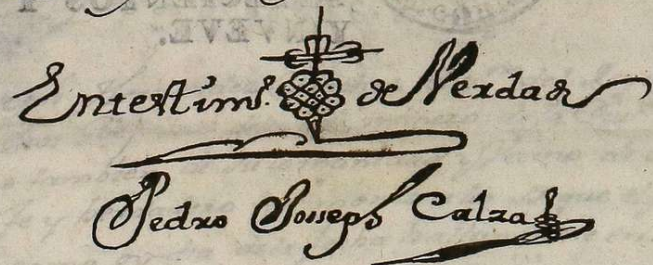 En testimº. de Verdad
Pedro Joseph Calza